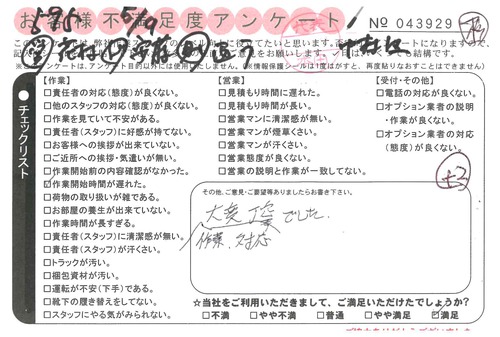 お客様不満足度アンケート
No 043929
595
5/19
【作業】
□責任者の対応(態度)が良くない。
□他のスタッフの対応(態度)が良くない。
□作業を見ていて不安がある。
□責任者(スタッフ)に好感が持てない。
□お客様への挨拶が出来ていない。
□ご近所への挨拶・気遣いが無い。
□作業開始前の内容確認がなかった。
☑作業開始時間が遅れた。
□荷物の取り扱いが雑である。
□お部屋の養生が出来ていない。
□作業時間が長すぎる。
□責任者(スタッフ)に清潔感が無い。
□責任者(スタッフ)が汗くさい。
□トラックが汚い。
□梱包資材が汚い。
□運転が不安(下手)である。
□靴下の履き替えをしてない。
□スタッフにやる気がみられない。
【営業】
□見積もり時間に遅れた。
□見積もり時間が長い。
□営業マンに清潔感が無い。
□営業マンが煙草くさい。
□営業マンが汗くさい。
□営業態度が良くない。
□営業の説明と作業が一致してない。
【受付・その他】
□電話の対応が良くない。
□オプション業者の説明
・作業が良くない。
□オプション業者の対応
(態度)が良くない。
チェックリスト
+3
その他、ご意見・ご要望等ありましたらお書き下さい。
大変丁寧でした。
作業、対応
☆当社をご利用いただきまして、ご満足いただけたでしょうか?
□不満 □やや不満 □普通 □やや満足 ☑満足